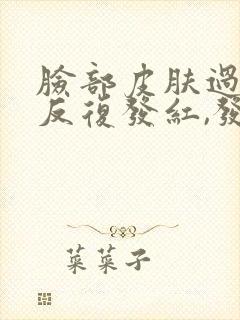 臉部皮肤過
反復發紅,發
菜菜子